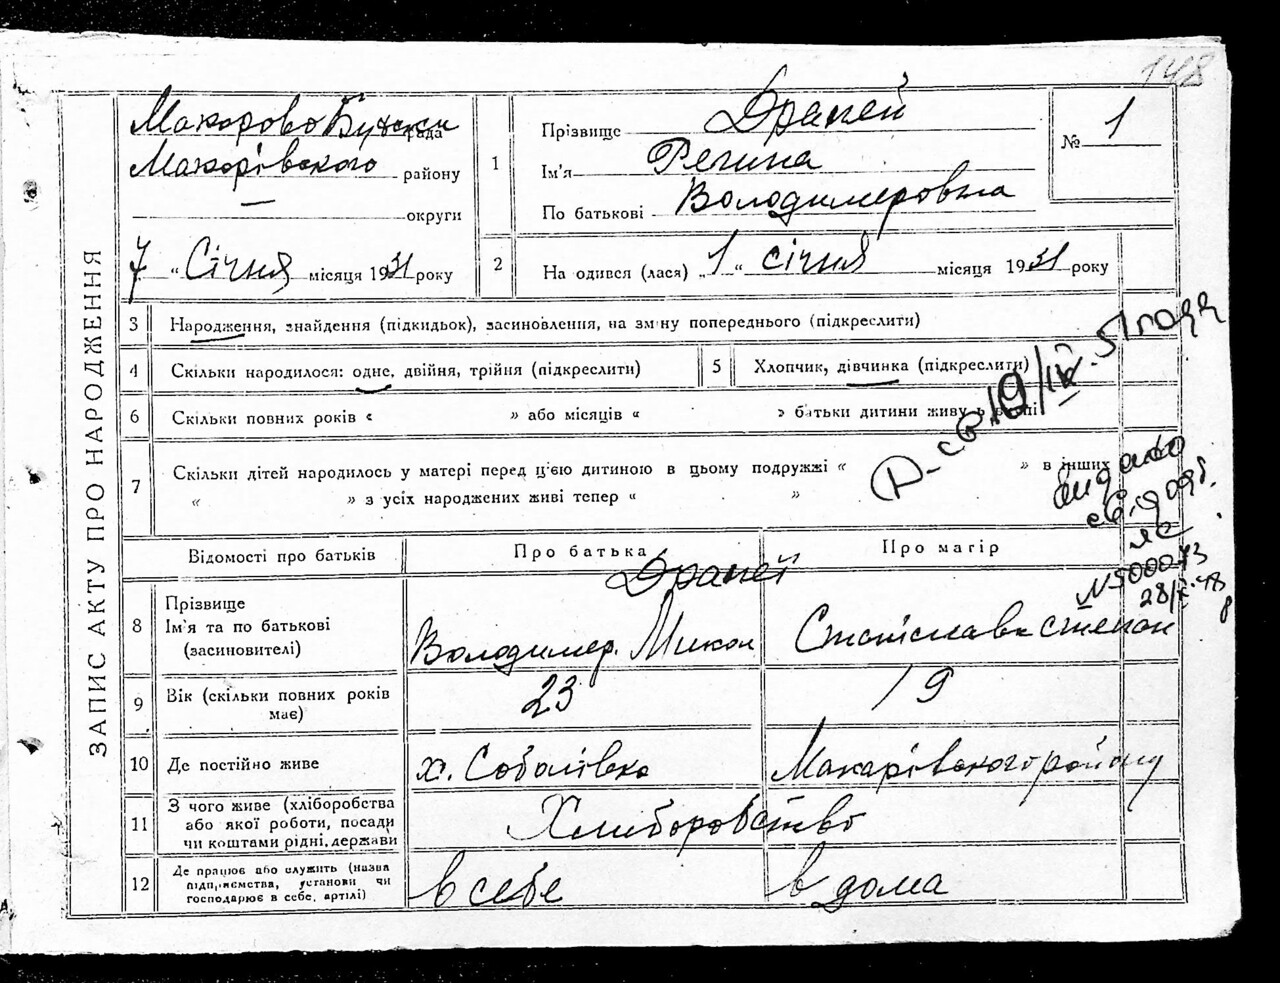 148
ЗАПИС АКТУ ПРО НАРОДЖЕННЯ
Макарово Бу рада
Макарівського району
— округи
7 „ Січня місяця 1931 року
1
Прізвище Драпей
Ім'я Регина
По батькові Володимеровна
№ 1
2 На одився (лася) „1 “ січня місяця 1931 року
3 Народження, знайдення (підкидьок), засиновлення, на зм ну попереднього (підкреслити)
4 Скільки народилося: одне, двійня, трійня (підкреслити)
5 Хлопчик, дівчинка (підкреслити)
6 Скільки повних років « » або місяців « » батьки дитини живу ь
7 Скільки дітей народилось у матері перед ц'єю дитиною в цьому подружжі « » в інших
« » з усіх народжених живі тепер « »
Д-св 19/IX-51 года
видано
св.
№500073
28/X-48
Відомості про батьків Про батька Про матір
Драпей
8 Прізвище
Ім'я та по батькові
(засиновителі)
Володимер. Микол Станіслава Степан
9 Вік (скільки повних років
має)
23 19
10 Де постійно живе х. Соболівка Макарівського району
11 З чого живе (хліборобства
або якої роботи, посади
чи коштами рідні, держави
Хлиборобство
12 Де працює або служить (назва
підприємства, установи чи
господарює в себе, артілі)
в себе в дома